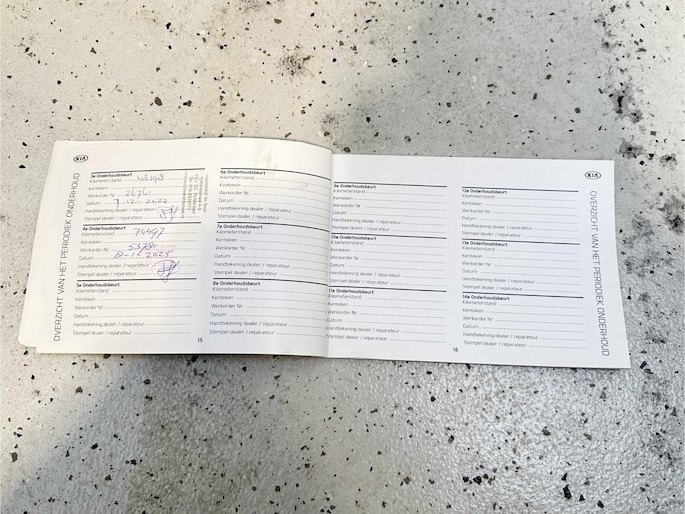 KIA
OVERZICHT VAN HET PERIODIEK ONDERHOUD
3e Onderhoudsbeurt
Kilometerstand
Kenteken
Werkorder Nr.
Datum 7-12-2022
Handtekening dealer / reparateur
Stempel dealer / reparateur
4e Onderhoudsbeurt
Kilometerstand
Kenteken
Werkorder Nr.
Datum
Handtekening dealer / reparateur
Stempel dealer / reparateur
5e Onderhoudsbeurt
Kilometerstand
Kenteken
Werkorder Nr.
Datum
Handtekening dealer / reparateur
Stempel dealer / reparateur
6e Onderhoudsbeurt
Kilometerstand
Kenteken
Werkorder Nr.
Datum
Handtekening dealer / reparateur
Stempel dealer / reparateur
7e Onderhoudsbeurt
Kilometerstand
Kenteken
Werkorder Nr.
Datum
Handtekening dealer / reparateur
Stempel dealer / reparateur
8e Onderhoudsbeurt
Kilometerstand
Kenteken
Werkorder Nr.
Datum
Handtekening dealer / reparateur
Stempel dealer / reparateur
15
9e Onderhoudsbeurt
Kilometerstand
Kenteken
Werkorder Nr.
Datum
Handtekening dealer / reparateur
Stempel dealer / reparateur
10e Onderhoudsbeurt
Kilometerstand
Kenteken
Werkorder Nr.
Datum
Handtekening dealer / reparateur
Stempel dealer / reparateur
11e Onderhoudsbeurt
Kilometerstand
Kenteken
Werkorder Nr.
Datum
Handtekening dealer / reparateur
Stempel dealer / reparateur
16
12e Onderhoudsbeurt
Kilometerstand
Kenteken
Werkorder Nr.
Datum
Handtekening dealer / reparateur
Stempel dealer / reparateur
13e Onderhoudsbeurt
Kilometerstand
Kenteken
Werkorder Nr.
Datum
Handtekening dealer / reparateur
Stempel dealer / reparateur
14e Onderhoudsbeurt
Kilometerstand
Kenteken
Werkorder Nr.
Datum
Handtekening dealer / reparateur
Stempel dealer / reparateur
KIA
OVERZICHT VAN HET PERIODIEK ONDERHOUD